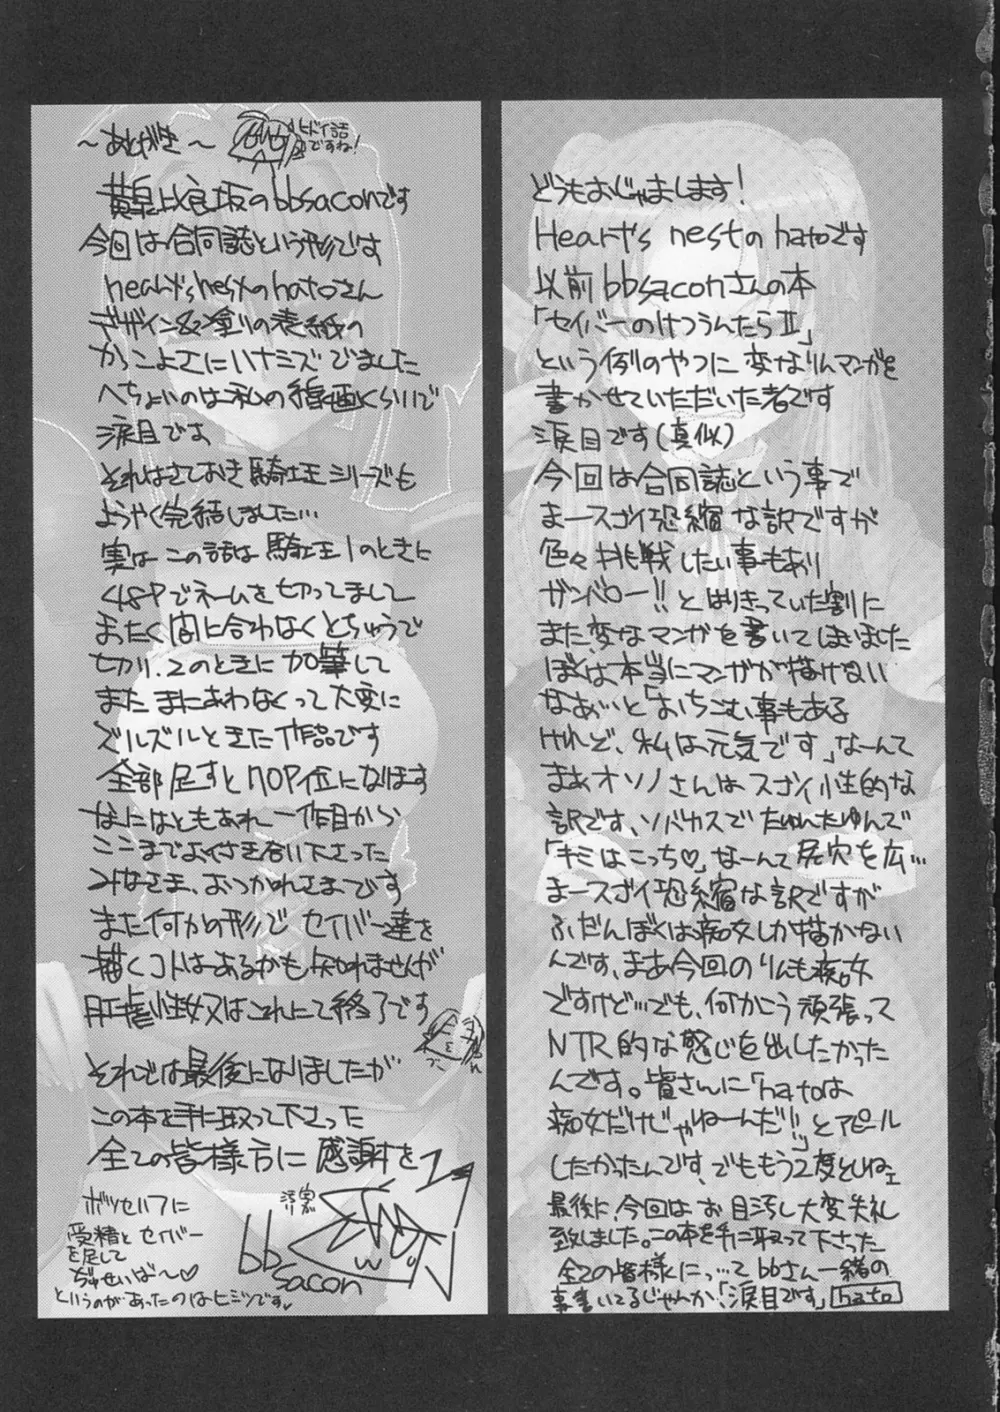 ～あとがき～
ヒドイ話
ですね！
黄泉比良坂のbbsaconです
今回は合同誌という形です
heart's nestのhatoさん
デザイン&塗りの表紙の
かっこよさにハナミズでました
へちょいのは私の線画くらいで
涙目です
それはさておき騎士王シリーズも
ようやく完結しました…
実はこの話は騎士王1のときに
48Pでネームを切ってまして
まったく間に合わなくとちゅうで
切り、2のときに加筆して
またまにあわなくって大変に
ズルズルときた作品です
全部足すと70P位になります
なにはともあれ一作目から
ここまでよくつき合い下さった
みなさま、おつかれさまです
また何かの形でセイバー達を
描くコトはあるかも知れませんが
肛虐性奴はこれにて終了です
それでは最後になりましたが
この本を手に取って下さった
全ての皆様方に感謝を
bb
sacon
ボツセリフに
受精とセイバー
を足して
ぢゅせいば～♡
というのがあったのはヒミツです。
どうもおじゃまします！
Heart's nestのhatoです
以前bbsaconさんの本
「セイバーのけつうんたらⅡ」
という例のやつに変なりんマンガを
書かせていただいた者です
涙目です(真似)
今回は合同誌という事で
まースゴイ恐縮な訳ですが
色々挑戦したい事もあり
ガンバロー!!とはりきっていた割に
また変なマンガを書いてしまいました
ぼくは本当にマンガが描けない
なあ…と「おちこむ事もある
けれど、私は元気です」なーんて
まぁオソノさんはスゴイ性的な
訳です、ソバカスでたゆんたゆんで
「キミはこっち♡」なーんて尻穴を広…
まースゴイ恐縮な訳ですが
ふだんぼくは痴女しか描かない
んです、まあ今回のりんも痴女
ですけど…でも、何かこう頑張って
NTR的な感じを出したかった
んです。皆さんに「hatoは
痴女だけじゃねーんだ!!」とアピール
したかったんです、でももう2度としねェ
最後に、今回はお目汚し大変失礼
致しました。この本を手に取って下さった
全ての皆様に…って bbさん一緒の
事書いてるじゃんか、「涙目です」 hato